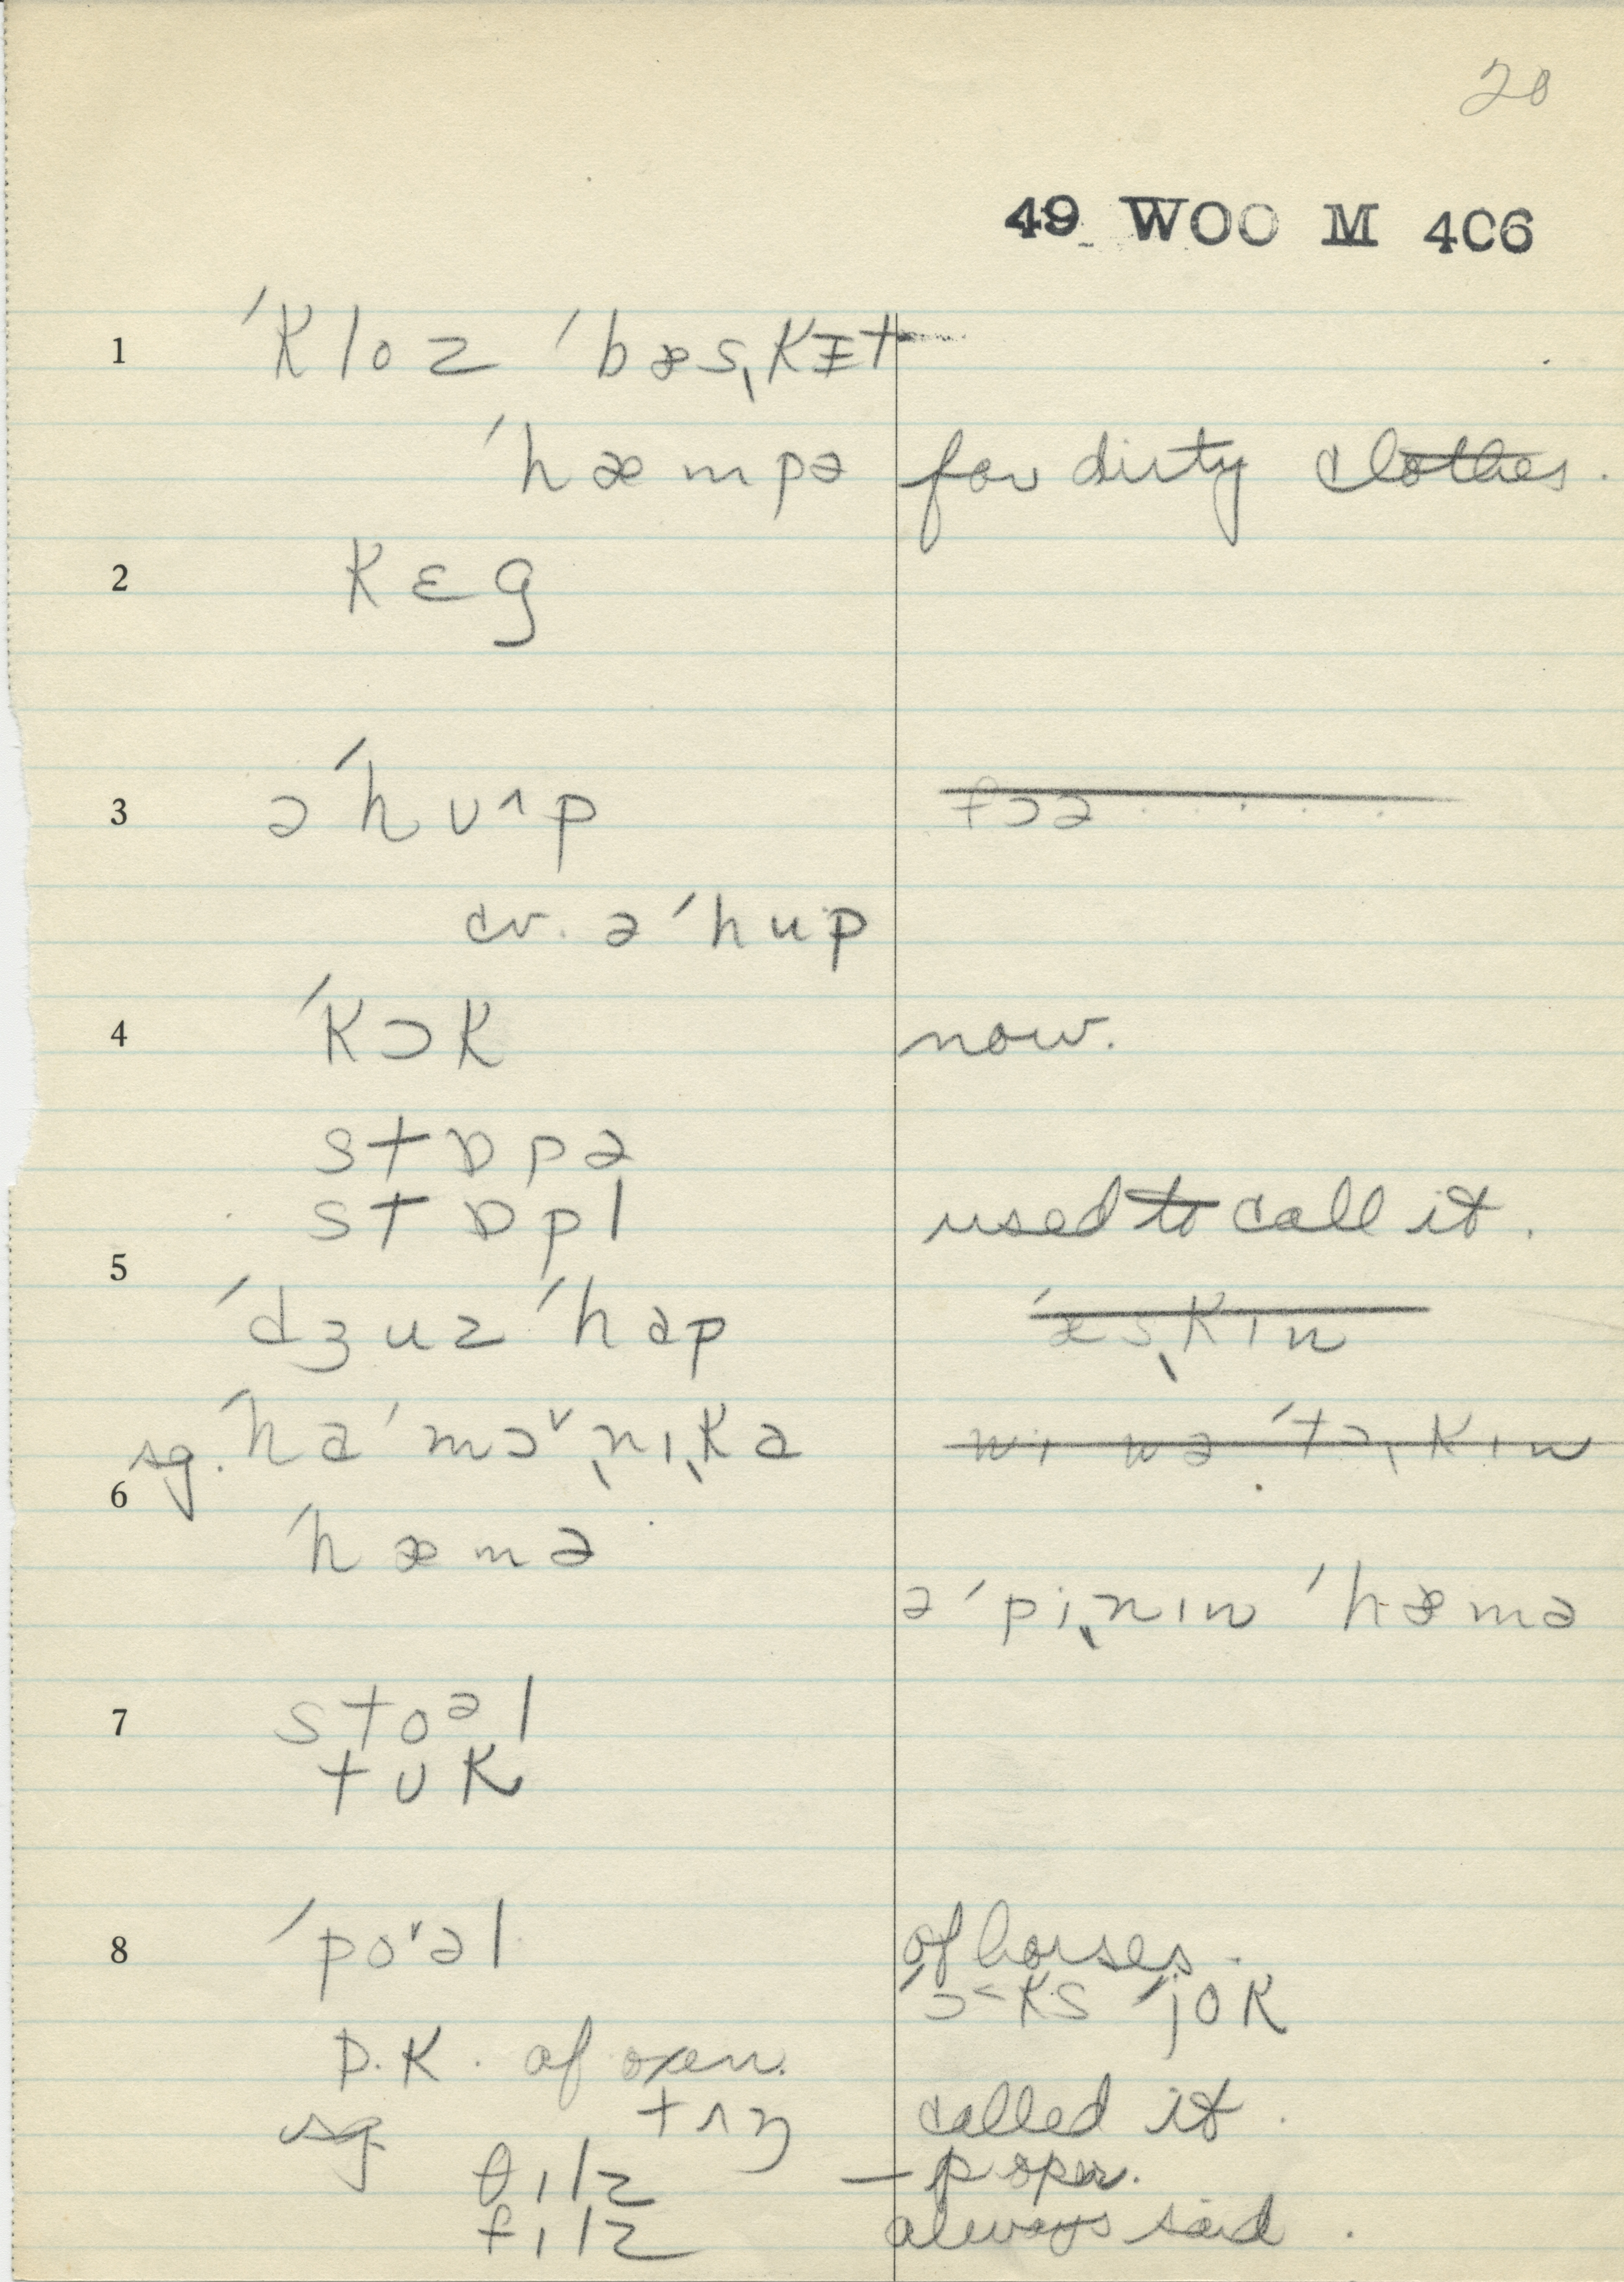 20
49 WOO M 406
1 ˈkloz ˈbæsˌkɪt
ˈhæmpə for dirty clothes.
2 kɛg
3 əˈhʊ^p fɔə
cv. əˈhup
4 ˈkɔk now.
stɒpə
stɒpl used to call it.
5
ˈdʒuz ˈhɑp ˈæsˌkɪn
sg. hɑˈmɔ˅ˌnɪˌkə
6
ˈhæmə
əˈpiˌnɪn ˈhæmə
7 stoᵊl
tʊk
8 ˈpo˅əl of horses.
ˈɔ˂ks ˈjok
D.K. of oxen.
sg tʌŋ called it.
θɪlz
fɪlz always said.